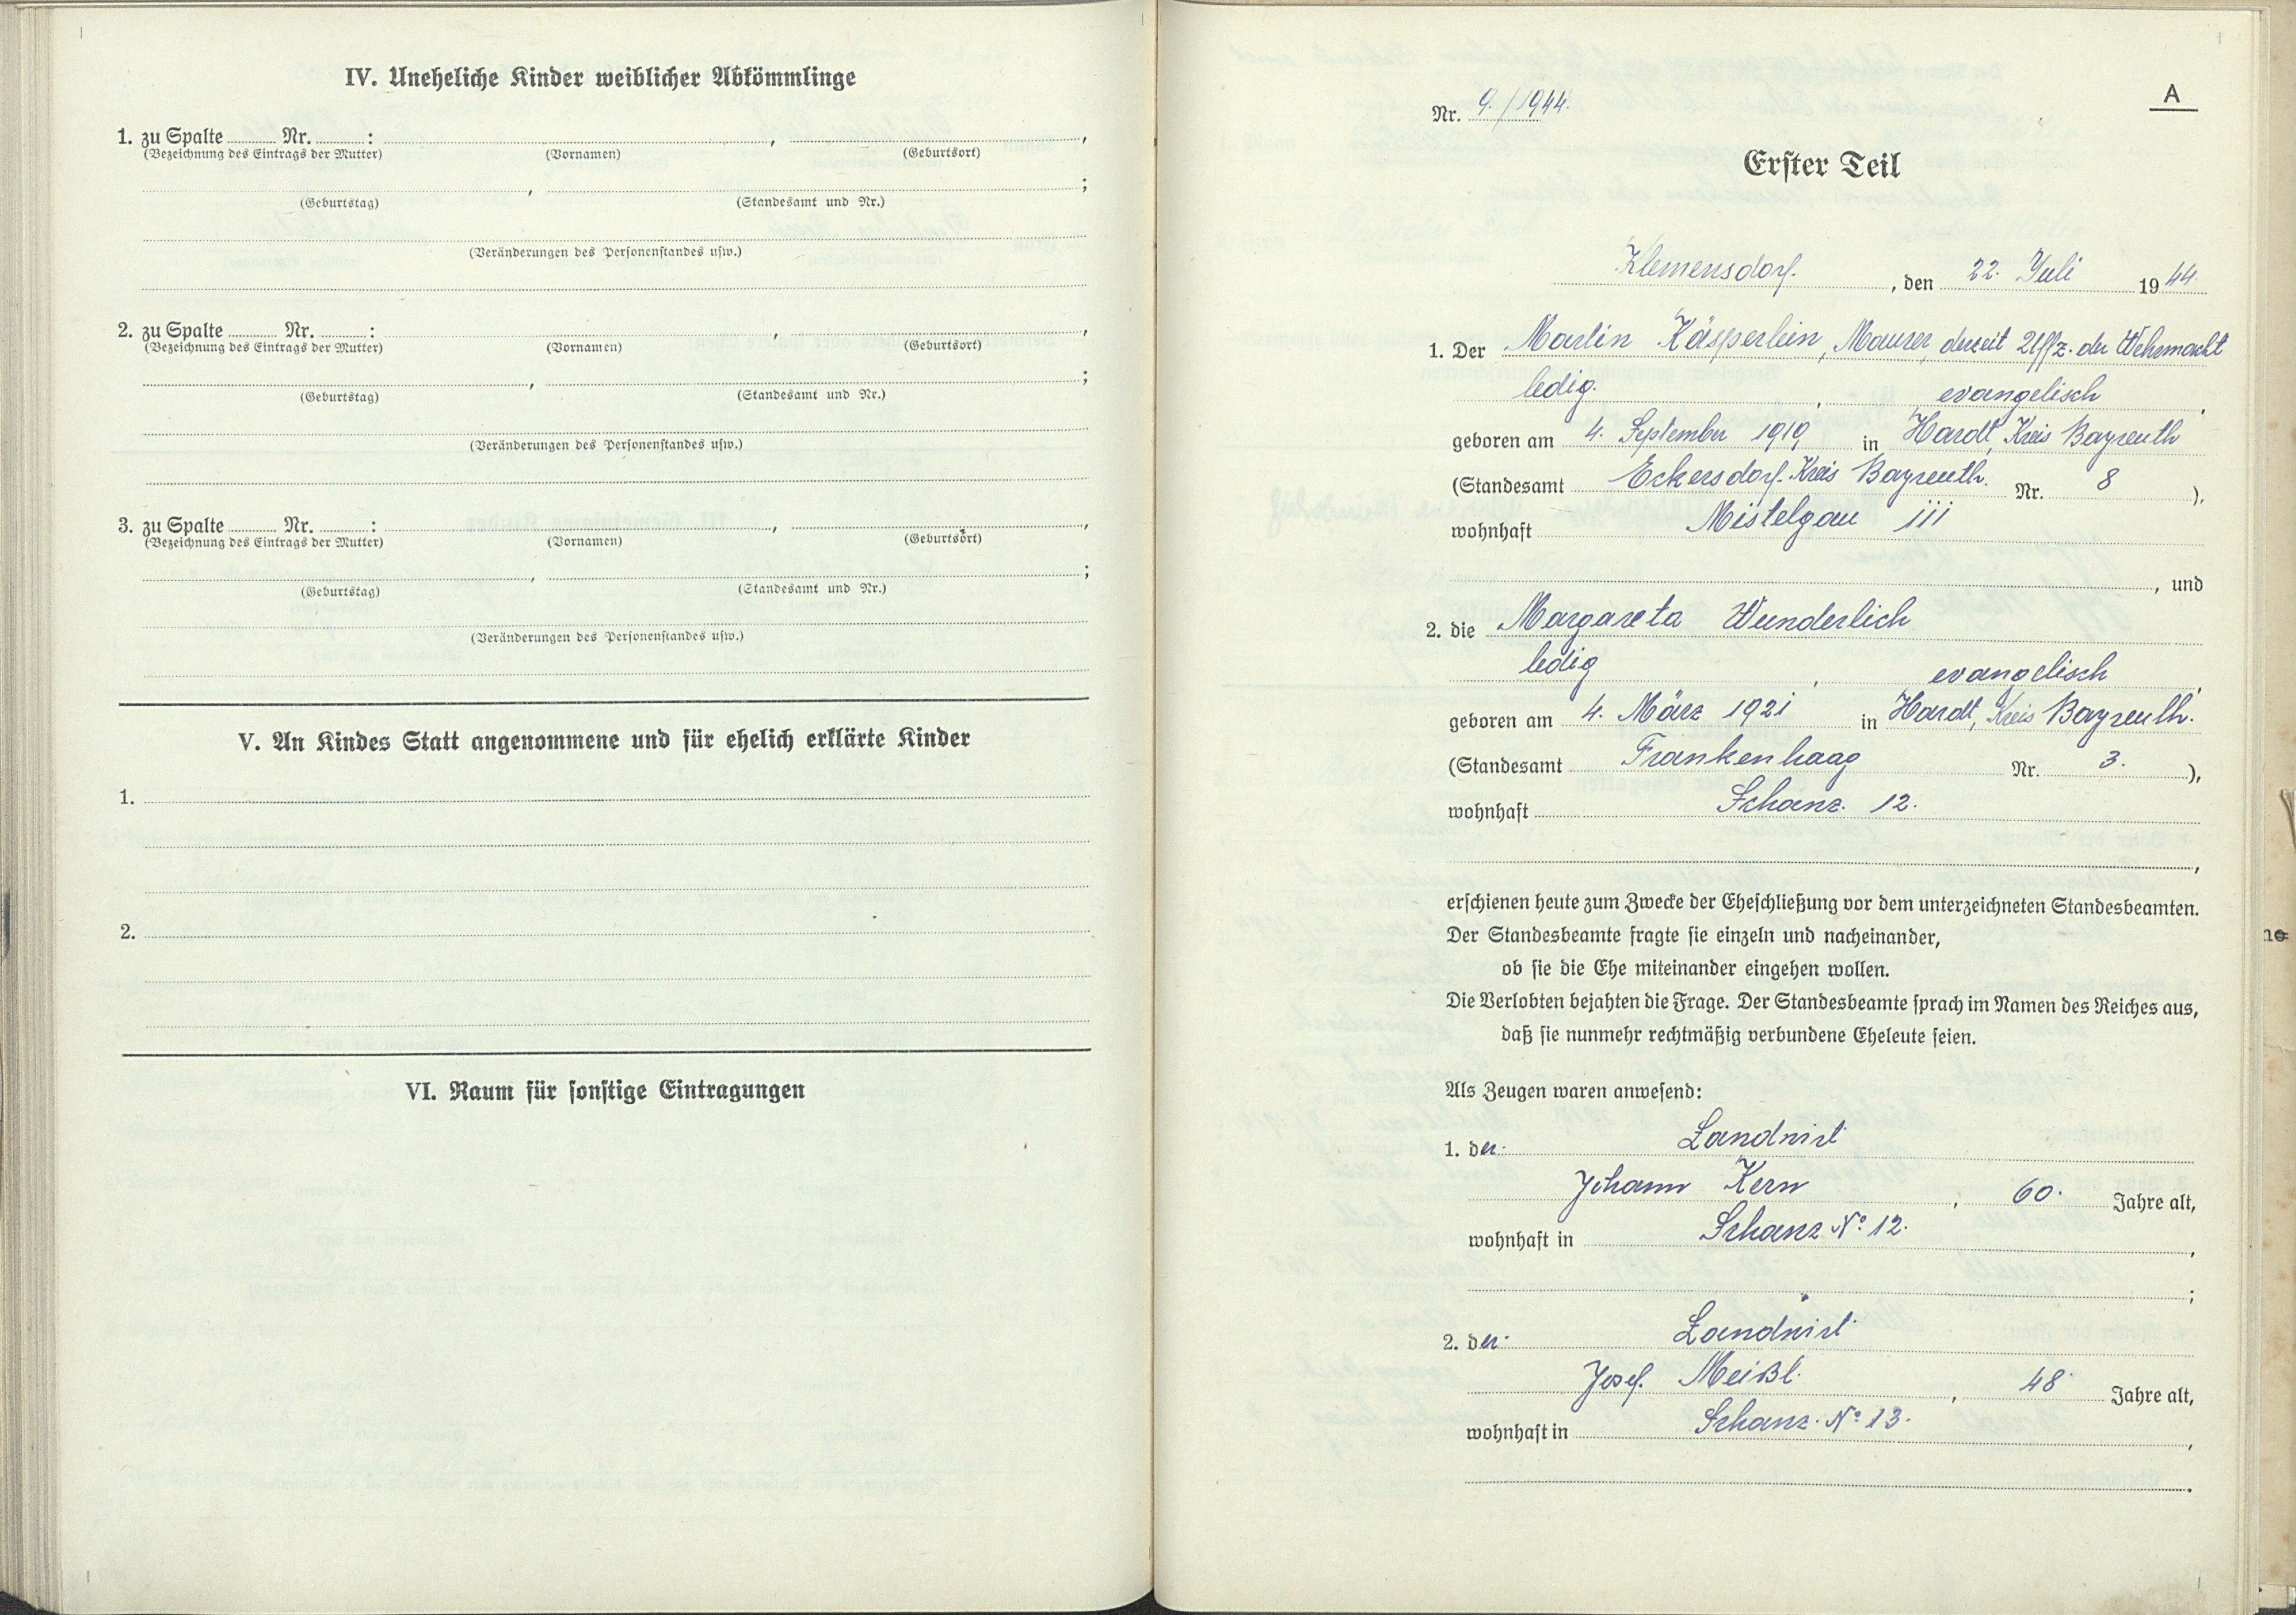 IV. Uneheliche Kinder weiblicher Abkömmlinge
1. zu Spalte ........ Nr. ........ : ........ , ........ ,
(Bezeichnung des Eintrags der Mutter) (Vornamen) (Geburtsort)
........ , ........ ;
(Geburtstag) (Standesamt und Nr.)
(Veränderungen des Personenstandes usw.)
2. zu Spalte ........ Nr. ........ : ........ , ........ ,
(Bezeichnung des Eintrags der Mutter) (Vornamen) (Geburtsort)
........ , ........ ;
(Geburtstag) (Standesamt und Nr.)
(Veränderungen des Personenstandes usw.)
3. zu Spalte ........ Nr. ........ : ........ , ........ ,
(Bezeichnung des Eintrags der Mutter) (Vornamen) (Geburtsort)
........ , ........ ;
(Geburtstag) (Standesamt und Nr.)
(Veränderungen des Personenstandes usw.)
V. An Kindes Statt angenommene und für ehelich erklärte Kinder
1.
2.
VI. Raum für sonstige Eintragungen
A
Nr. 9./1944.
Erster Teil
Klemensdorf. , den 22. Juli 1944.
1. Der Martin Käsperlein, Maurer, derzeit Uffz. der Wehrmacht
ledig. , evangelisch ,
geboren am 4. September 1919 in Hardt, Kreis Bayreuth
(Standesamt Eckersdorf. Kreis Bayreuth. Nr. 8 ),
wohnhaft Mistelgau 111
, und
2. die Margareta Wunderlich
ledig , evangelisch ,
geboren am 4. März 1921 in Hardt, Kreis Bayreuth.
(Standesamt Frankenhaag Nr. 3. ),
wohnhaft Schanz. 12.
,
erschienen heute zum Zwecke der Eheschließung vor dem unterzeichneten Standesbeamten.
Der Standesbeamte fragte sie einzeln und nacheinander,
ob sie die Ehe miteinander eingehen wollen.
Die Verlobten bejahten die Frage. Der Standesbeamte sprach im Namen des Reiches aus,
daß sie nunmehr rechtmäßig verbundene Eheleute seien.
Als Zeugen waren anwesend:
1. der Landwirt
Johann Kern , 60. Jahre alt,
wohnhaft in Schanz No 12. ,
;
2. der Landwirt
Josef. Meißl. , 48 Jahre alt,
wohnhaft in Schanz. No 13. ,
.